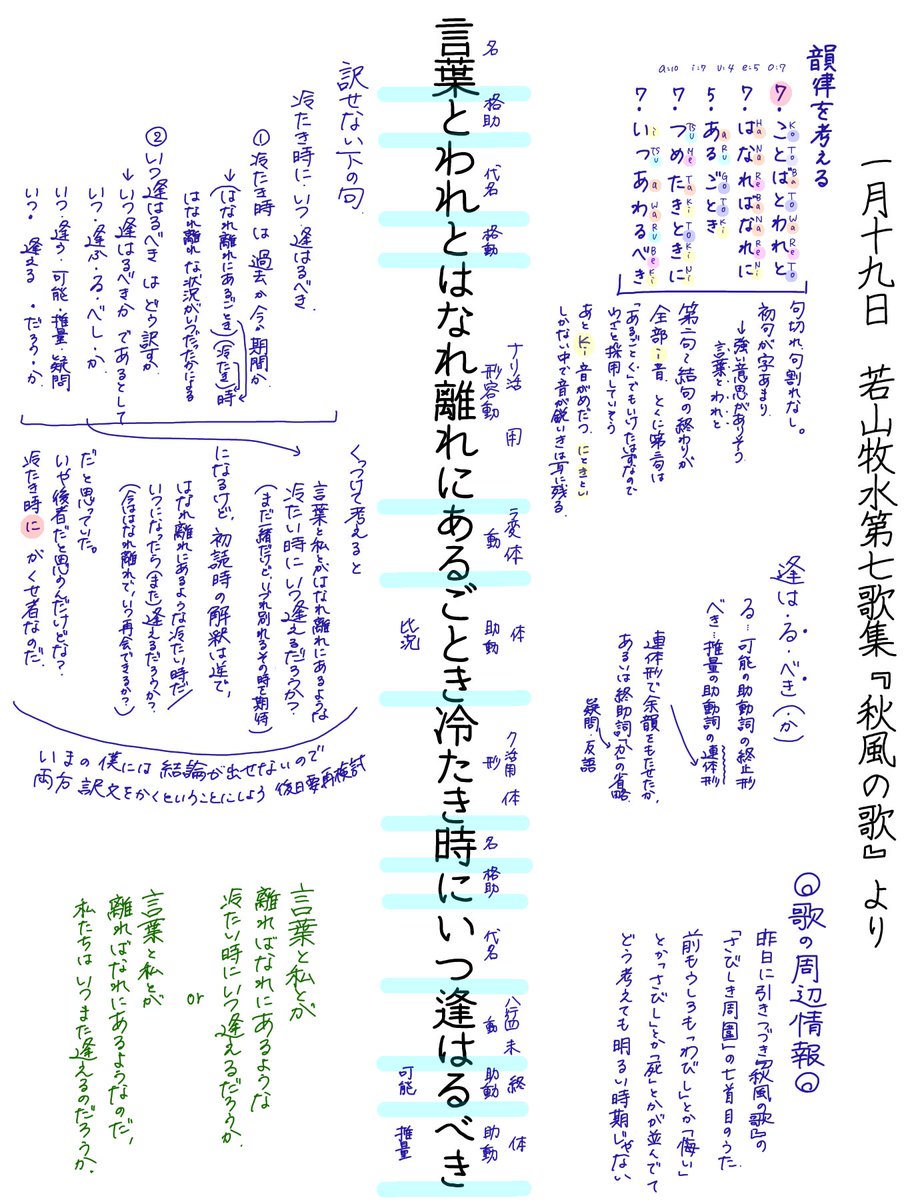 一月十九日　若山牧水第七歌集『秋風の歌』より
韻律を考える
a:10 i:7 u:4 e:5 o:7
7・ことばとわれと
Ko To Ba To Wa Re To
7・はなればなれに
Ha Na Re Ba Na Re Ni
5・あるごとき
a Ru Go To Ki
7・つめたきときに
Tsu Me Ta Ki To Ki Ni
7・いつあわるべき
i Tsu a Wa Ru Be Ki
句切れ、句割れなし。
初句が字あまり
→強い意思がありそう
言葉と、われと
第二句〜結句の終わりが
全部i音、とくに第三句は
「あるごとく」でもいけたはずなので
わざと採用していそう
あとKi音がめだつ にときとい
しかない中で音が鋭いきは耳に残る。
逢は・る・べき(か)
る…可能の助動詞の終止形
べき…推量の助動詞の連体形
連体形で余韻をもたせたか、
あるいは終助詞「か」の省略
疑問・反語
◎歌の周辺情報◎
昨日に引きつづき『秋風の歌』の
「さびしき周圍」の七首目のうた
前もうしろも「わびし」とか「悔い」
とか「さびし」とか「死」とかが並んでて
どう考えても明るい時期じゃない
言葉とわれとはなれ離れにあるごとき冷たき時にいつ逢はるべき
名
格助
代名
格助
ナリ活
形容動
用
ラ変体
動
体
助動
比況
ク活用
形
体
名
格助
代名
八行四 未
動
終
助動
可能
体
助動
推量
訳せない下の句
冷たき時に・いつ・逢はるべき
① 冷たき時 は 過去か今の期間か。
→(はなれ離れにあるごとき)(冷たき)時
はなれ離れな状況がいつだったかによる
② いつ逢はるべき はどう訳すか
→いつ逢はるべきか であるとして
いつ・逢ふ・る・べし・か
いつ・逢う・可能・推量・疑問
いつ・逢える・だろう・か
くっつけて考えると
言葉と私とがはなれ離れにあるような
冷たい時にいつ逢えるだろうか?
(まだ一緒だけど、いづれ別れるその時を期待)
になるけど、初読時の解釈は逆で、
はなれ離れにあるような冷たい時だ/
いつになったら(また)逢えるだろうか?
(今ははなれ離れで、いつ再会できるか?)
だと思っていた。
いや後者だと思うんだけどな?
冷たき時に がくせ者なのだ。
いまの僕には結論が出せないので
両方訳文をかくということにしよう 後日要再検討
言葉と私とが
離ればなれにあるような
冷たい時にいつ逢えるだろうか。
or
言葉と私とが
離ればなれにあるようなのだ、
私たちはいつまた逢えるのだろうか。